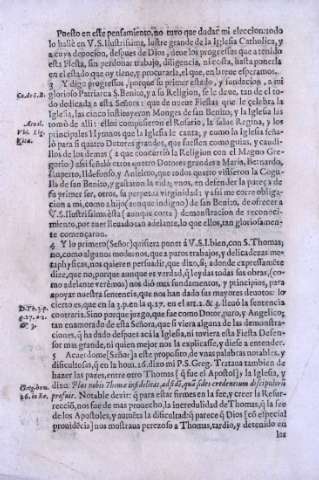 Puesto en este pensamiento, no tuvo que dudar mi eleccion:
lo hallè en V.S. Ilustrissima, lustre grande de la Iglesia Catholica, y
a cuya devocion, despues de Dios, deve los progressos que a tenido
esta Fiesta, sin perdonar trabajo, diligencia, ni costa, hasta ponerla
en el estado que oy tiene, y procurarla, el que, en breve esperamos.
3 Y digo progressos, porque su primer estado, y fundacion, a mi
glorioso Patriarca S. Benito, y a su Religion, se le deve, tan de el to
do dedicada a esta Señora: que de nueve Fiestas que le celebra la
Iglesia, las cinco instituyeron Monges de san Benito, y la Iglesia las
tomò de alli: ellos compusieron el Rosario, la salve Regina, y los
principales Hymnos que la Iglesia le canta, y como la Iglesia seña-
lò para si quatro Doctores grandes, que fuessen como guias, y caudi-
llos de los demas (a que concurriò la Religion con el Magno Gre-
gorio) assi señalò otros quatro Doctores grandes a Maria, Bernardo,
Ruperto, Ildefonso, y Anselmo, que todos quatro vistieron la Cogu-
lla de san Benito, y gastaron la vida, unos, en defender la pureça de
su primer ser, otros, su perpetua virginidad; y assi me corre obligaci-
on a mi, como a hijo (aunque indigno) de san Benito, de ofrecer a
V.S. Ilustrissima esta (aunque corta) demonstracion de reconoci-
miento, por aver llevado tan adelante, lo que ellos, tan gloriosamen-
te començaron.
4 Y lo primero (Señor) quisiera poner à V.S.I. bien, con S. Thomas;
no, como algunos modernos, que a puros trabajos, y delicadezas me-
taphysicas, nos quiere persuadir, que dixo, si; adonde expressamẽte
dize, que no, porque aunque es verdad, q̃ leydas todas sus obras, (co-
mo adelante verèmos) nos diò mas fundamentos, y principios, para
apoyar nuestra sentencia, que nos han dado sus mayores devotos: lo
cierto es, que en la 3. p. en la q. 27. en el art. 2. & 3. llevò la sentencia
contraria. Sino porque juzgo, que fue como Doctor, puro, y Angelico;
tan enamorado de esta Señora, que si viera alguna de las demonstra-
ciones, q̃ ha dado despues acà la Iglesia, ni tuviera esta Fiesta Defen-
sor mas grande, ni quien mejor nos la explicasse, y diesse a entender.
5 Acuerdome (Señor) a este proposito, de unas palabras notables, y
dificultosas, q̃ en la hom. 26. dixo mi P. S. Greg. Tratava tambien de
hazer las pazes, entre otro Thomas (q̃ fue el Apostol) y la Iglesia, y
dixo. Plus nobis Thomæ infidelitas, ad fidẽ, quã fides credentium discipulorũ
profuit. Notable dezir: q̃ para estar firmes en la fee, y creer la Resur-
recciò, nos fue de mas provecho, la incredulidad de Thomas, q̃ la fee
de los Apostoles, y aumẽta la dificultad: q̃ parece q̃ Dios (cõ especial
providẽcia) nos mostrava perezoso a Thomas, tardio, y detenido en
las